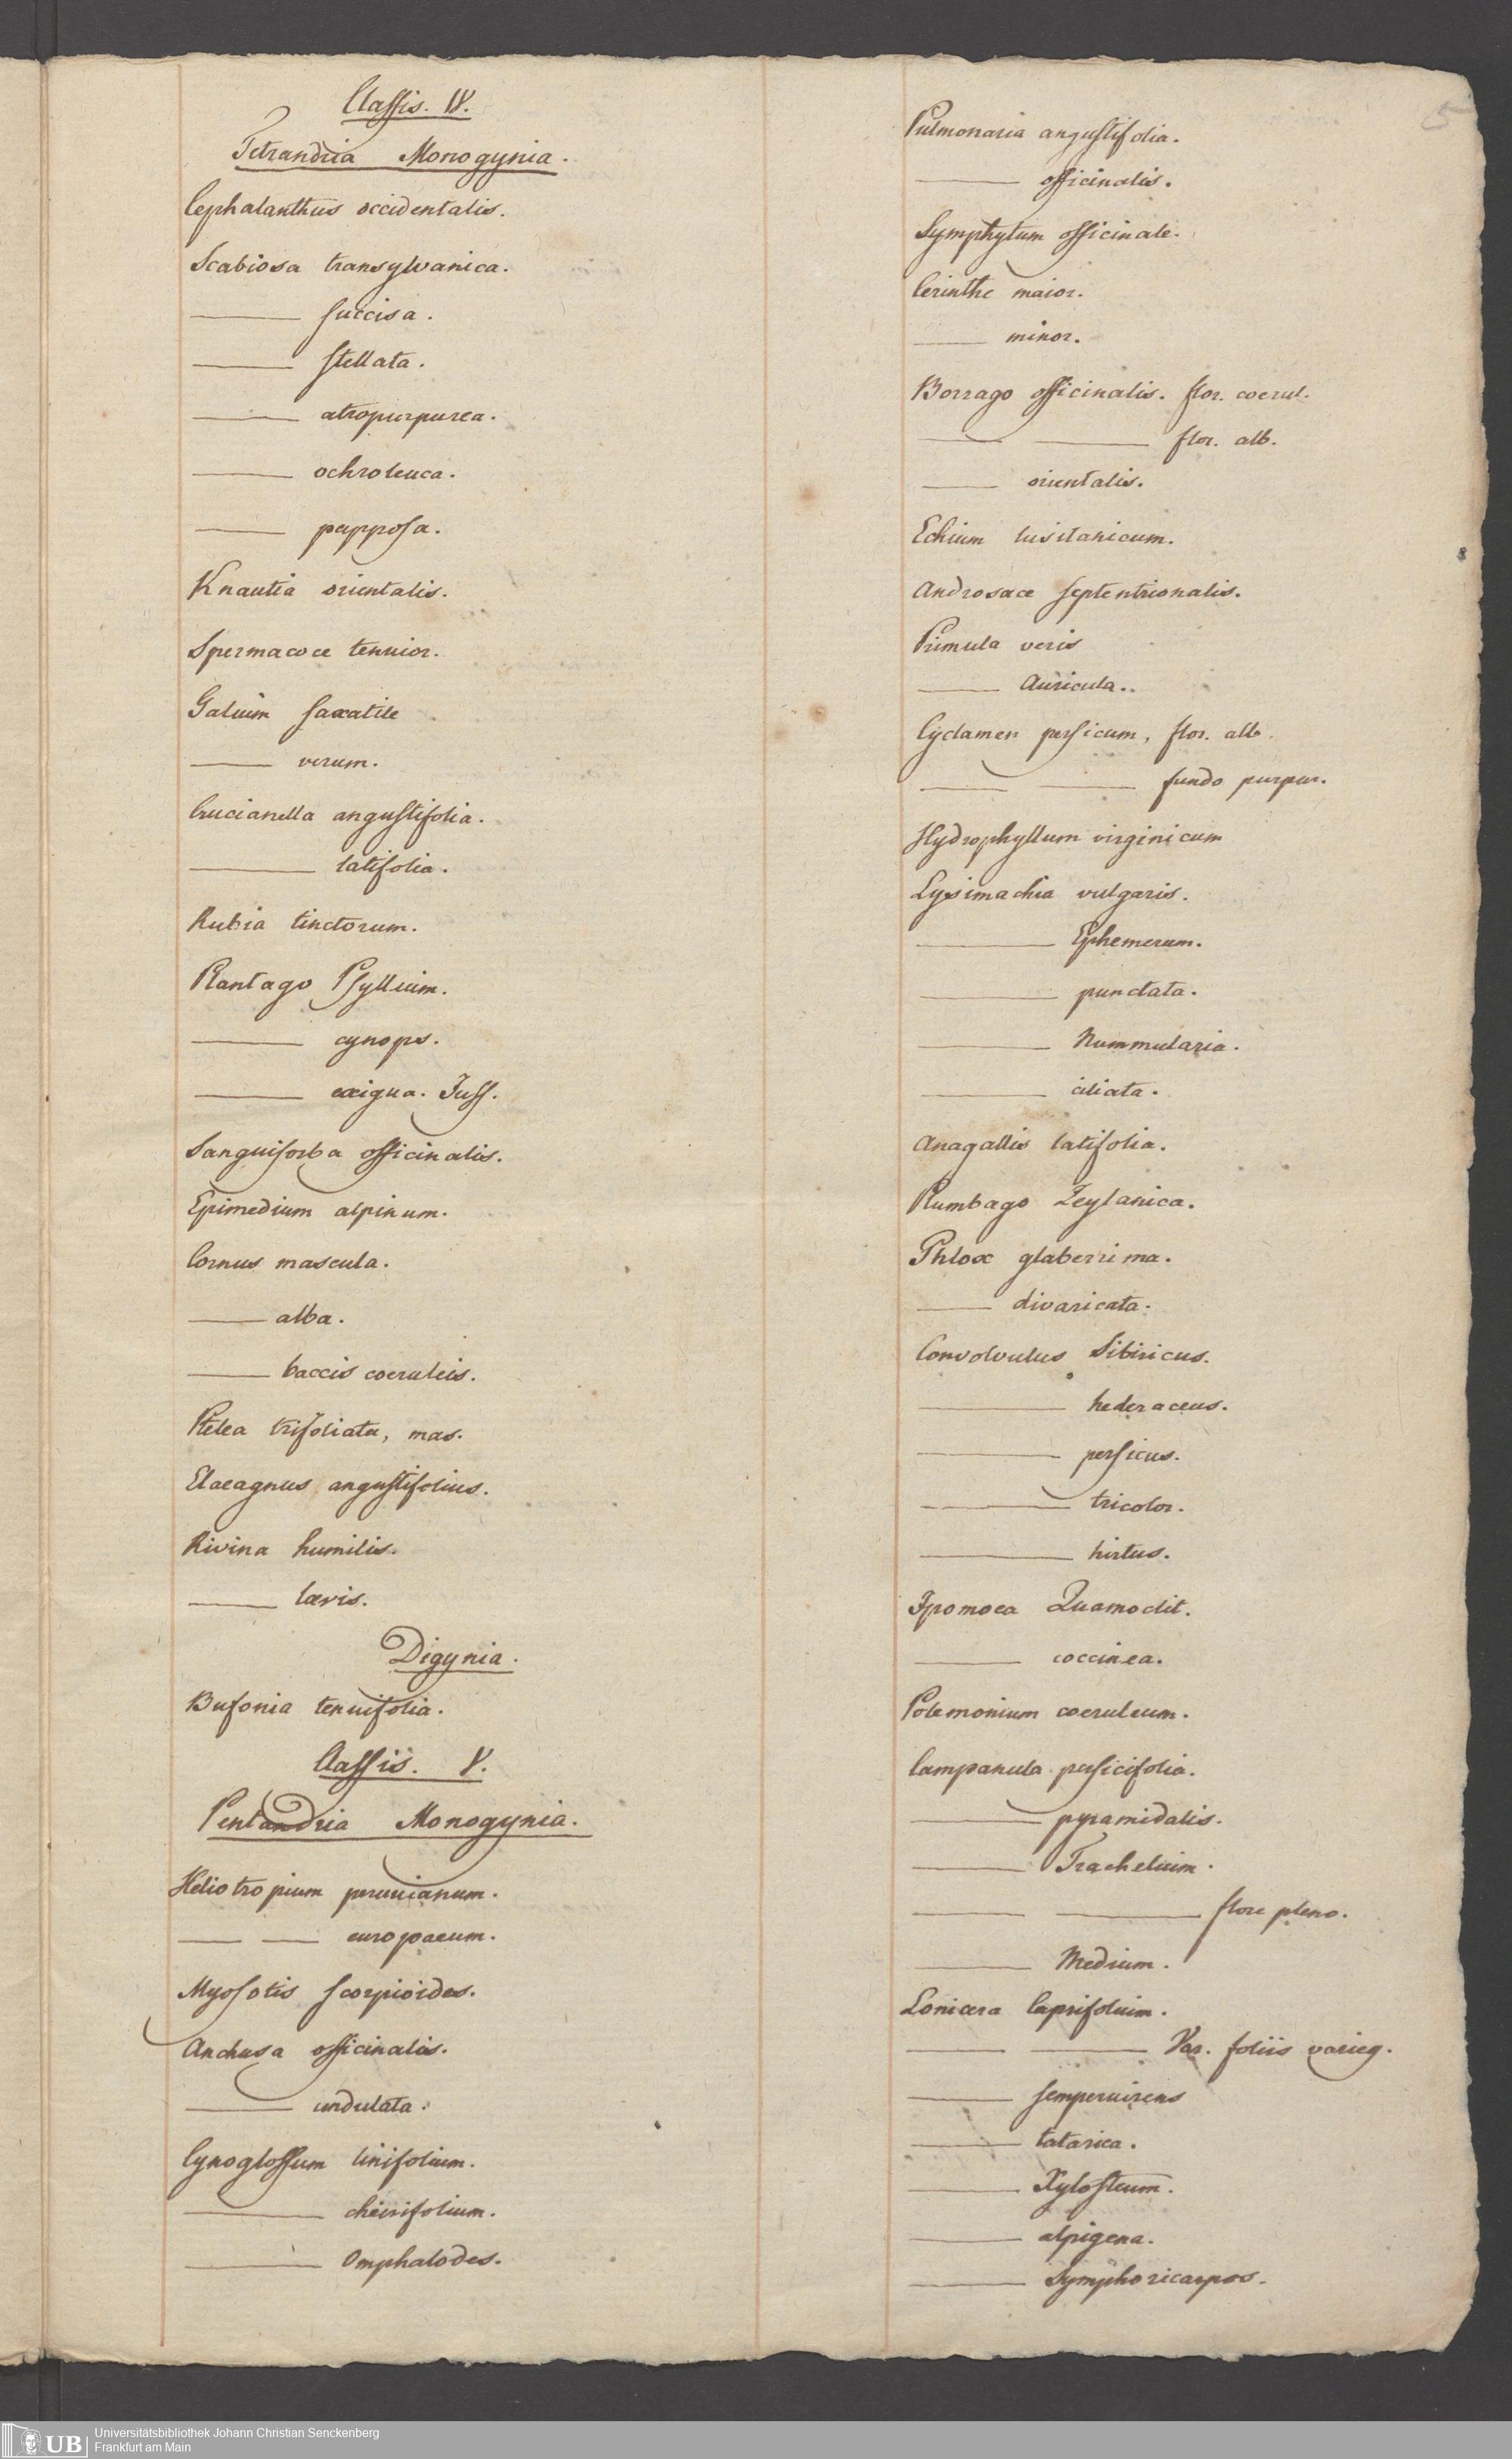 Classis. IV.
Tetrandria Monogynia.
Cephalanthus occidentalis.
Scabiosa transylvanica.
——— succisa.
——— stellata.
——— atropurpurea.
——— ochroleuca.
——— papposa.
Knautia orientalis.
Spermacoce tenuior.
Galium saxatile
——— verum.
Crucianella angustifolia.
——— latifolia.
Rubia tinctorum.
Plantago Psyllium.
——— cynops.
——— exigua. Juss.
Sanguisorba officinalis.
Epimedium alpinum.
Cornus mascula.
——— alba.
——— baccis coeruleis.
Ptelea trifoliata, mas.
Elaeagnus angustifolius.
Rivina humilis.
——— laevis.
Digynia.
Bufonia tenuifolia.
Classis. V.
Pentandria Monogynia.
Heliotropium peruvianum.
—— —— europaeum.
Myosotis scorpioides.
Anchusa officinalis.
——— undulata.
Cynoglossum linifolium.
——— cheirifolium.
——— Omphalodes.
5
Pulmonaria angustifolia.
——— officinalis.
Symphytum officinale.
Cerinthe maior.
——— minor.
Borrago officinalis. flor. coerul.
——— ——— flor. alb.
——— orientalis.
Echium lusitanicum.
Androsace septentrionalis.
Primula veris
——— Auricula.
Cyclamen persicum, flor. alb.
——— ——— fundo purpur.
Hydrophyllum virginicum
Lysimachia vulgaris.
——— Ephemerum.
——— punctata.
——— Nummularia.
——— ciliata.
Anagallis latifolia.
Plumbago Zeylanica.
Phlox glaberrima.
——— divaricata.
Convolvulus Sibiricus.
——— hederaceus.
——— persicus.
——— tricolor.
——— hirtus.
Ipomoea Quamoclit.
——— coccinea.
Polemonium coeruleum.
Campanula persicifolia.
——— pyramidalis.
——— Trachelium.
——— ——— flore pleno.
——— Medium.
Lonicera Caprifolium.
——— ——— Var. foliis varieg.
——— sempervirens
——— tatarica.
——— Xylosteum.
——— alpigena.
——— Symphoricarpos.
UB
Universitätsbibliothek Johann Christian Senckenberg
Frankfurt am Main